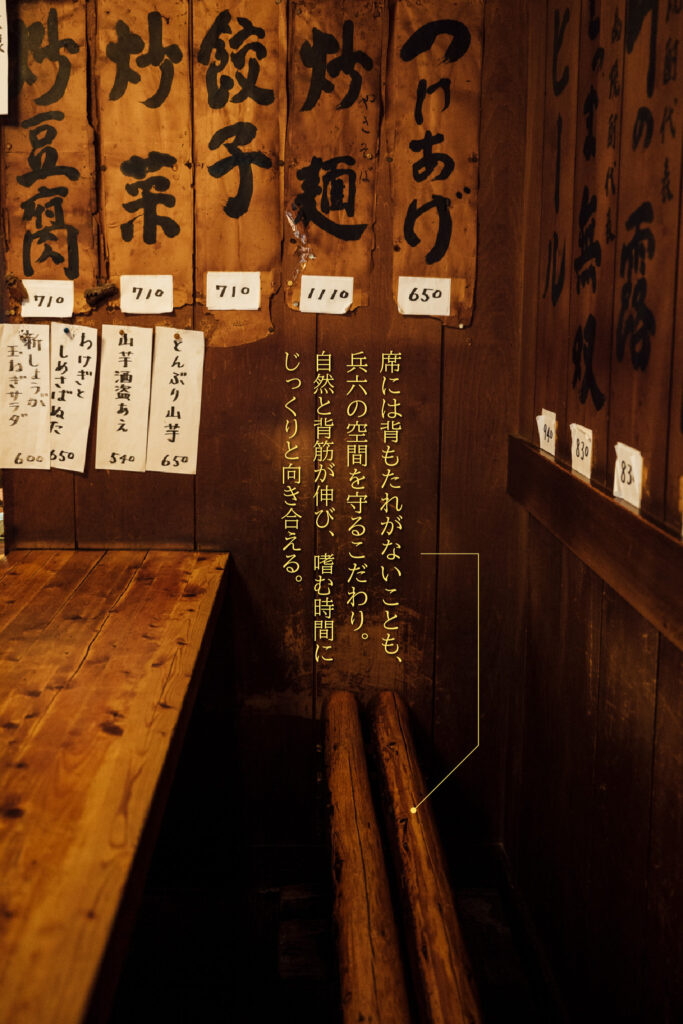 つけあげ
650
炒麺
やきそば
1110
餃子
710
炒菜
710
炒豆腐
710
とんぶり山芋
650
山芋酒盗あえ
540
わけぎと
しめさばぬた
650
新しょうが
玉ねぎサラダ
600
ビール
940
無双
830
露
席には背もたれがないことも、
兵六の空間を守るこだわり。
自然と背筋が伸び、嗜む時間に
じっくりと向き合える。